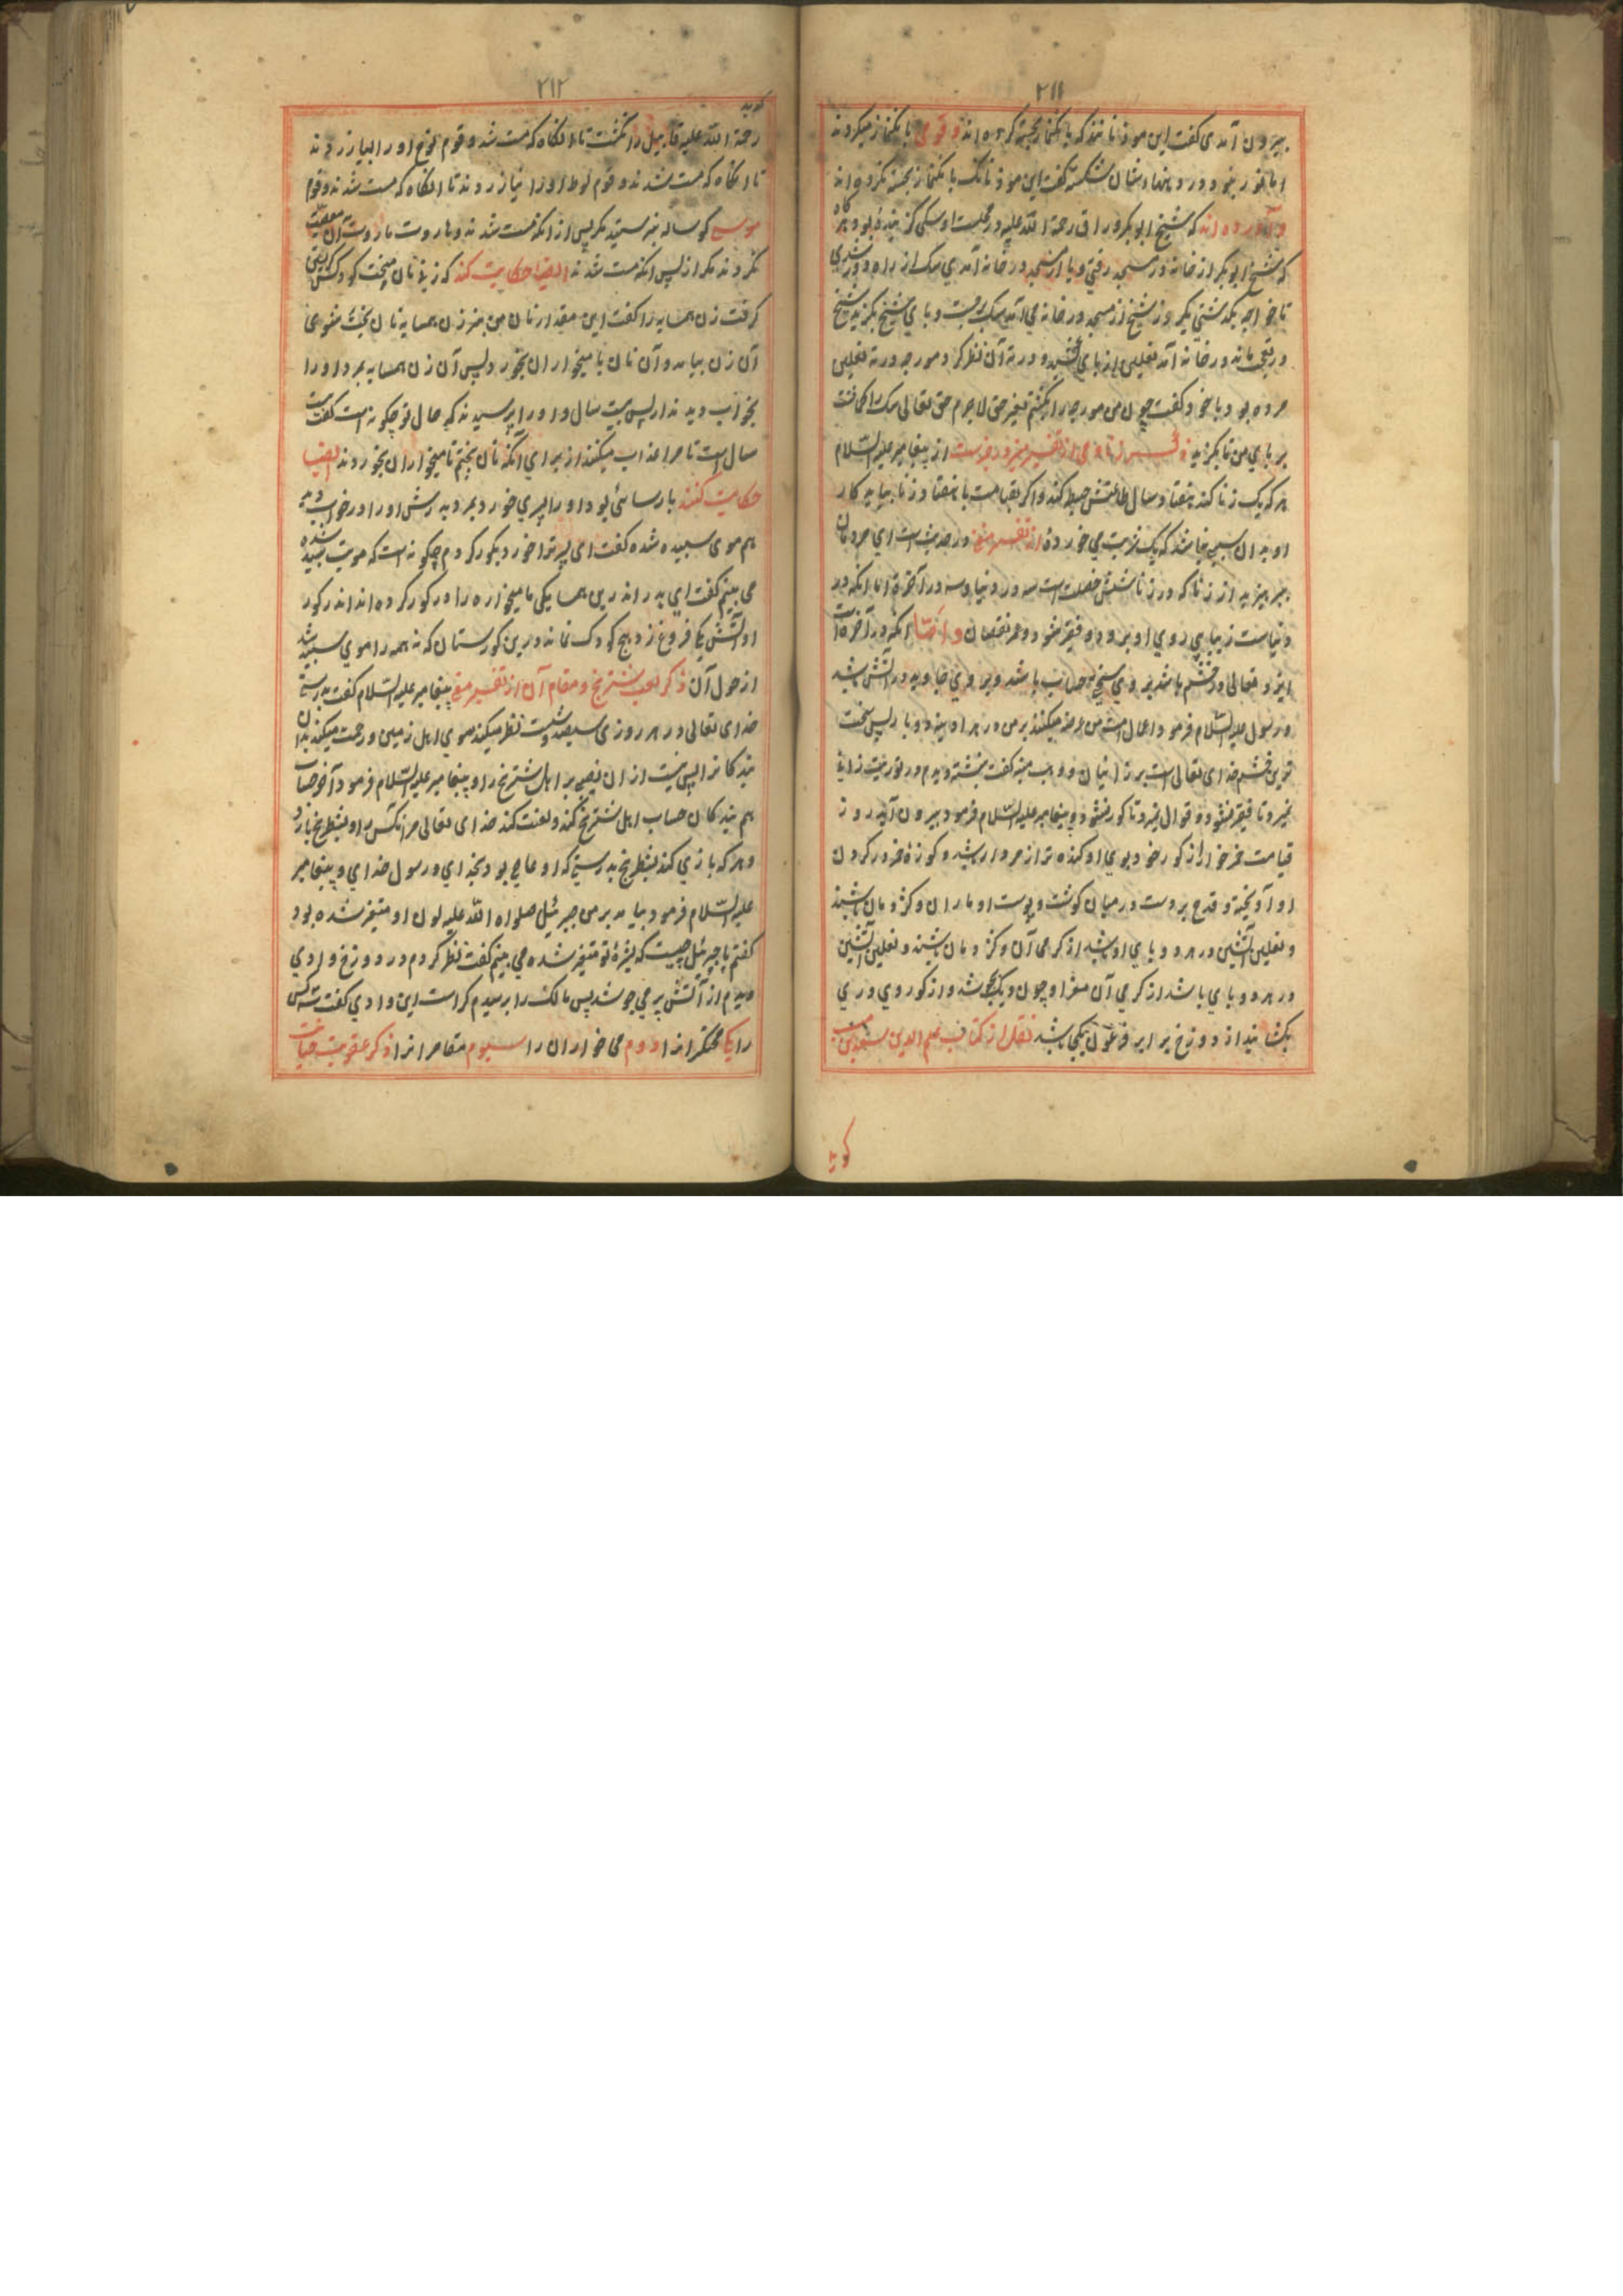 ٢١١
بیرون آمدی گفت این موذنانند که بانکنماز بجسته کرده اند و قومی بانکنماز میکردند
و آورده اند که شیخ ابوبکر وراق رحمة الله علیه در محلت او سکی کزنده بود و هر کاه
که شیخ ابوبکر از خانه در مسجد رفتی و یا از مسجد در خانه آمدی سک از راه دور شدی
تا خواجه بکذشتی یکروز شیخ از مسجد در خانه می آمد سک بجست و پای شیخ بکزید شیخ
در تعجب ماند در خانه آمد نعلین از پای کشید و در ته آن نظر کرد مورچه در ته نعلین
مرده بود با خود گفت چون من مورچه را بکشتم بغیر حق لاجرم حق تعالی سک را کماشت
بر پای من تا بکزید از پیغامبر علیه السلام
هر که یک زنا کند هفتاد سال طاعتش حبط کند و اگر بقیامت با هفتاد زنا بیاید کار
او بدان سیمی نباشد که یک شربت می خورده از تفسیر مغنی در حدیث است ای مردمان
بپرهیزید از زنا که در زنا شش خصلت است سه در دنیا و سه در آخرة اما آنکه در
دنیاست زیبایی روی او برود و فقیر شود و عمر نقصان و امّا آنکه در آخرة است
ایزد تعالی در خشم باشد بر وی سختی حساب باشد و بر وی جاوید در آتش باشد
و رسول علیه السلام فرمود اعمال امت من عرضه میکنند بر من در هر ماه دو بار پس سخت
ترین خشم خدای تعالی است بر زانیان و وهب منبه گفت نبشته دیدم در توریت زانی
نمیرد تا فقیر نشود و قوال نمیرد تا کور نشود و پیغامبر علیه السلام فرمود بیرون آید روز
قیامت خمرخوار از کور خود بوی او کنده تر از مردار باشد و کوزه خمر در کردن
او آویخته و قدح بر دست در میان کوشت و پوست او ماران و کژدمان باشند
و نعلین آتشین در هر دو پای او باشد از کرمی آن و کژدمان باشند و نعلین آتشین
در هر دو پای باشد از کرمی آن مغز او چون دیک بجوشد و از کور وی دری
بکشایند از دوزخ برابر فرعون یکجا باشد نقل از کتاب علم الدین
کوید
٢١٢
کوید
رحمة الله علیه قابیل را نکشت تا آنکاه که مست شد و قوم نوح او را نیازردند
تا آنکاه که مست شدند و قوم لوط او را نیازردند تا آنکاه که مست شدند و قوم
موسی کوساله نپرستیدند مکر پس از آنکه مست شدند و هاروت ماروت آن معصیت
نکردند مکر از پس آنکه مست شدند ایضاً حکایت کنند که زنی نان میپخت کودکش
کرفت زن همسایه را گفت این مقدار نان من بپز زن همسایه نان پخت شوی
آن زن بیامد و آن نان با میخواران بخورد پس آن زن همسایه بمرد او را
بخواب دیدند از پس بیست سال او را پرسیدند که حال تو چکونه است گفت بیست
سال است تا مرا عذاب میکنند از برای آنکه نان پختم تا میخواران بخوردند ایضاً
حکایت کنند پارسائی بود او را پسری خورد بمرد پدرش او را در خواب دید
هم موی سپید شده گفت ای پسر ترا خورد بکور کردم چکونه است که مویت سپید شده
می بینم گفت ای پدر اندرین همسایکی ما میخواره را در کور کرده اند اندر کور
او آتش فروغ زد هیچ کودک نماند درین کورستان که نه همه را موی سپید شد
از هول آن ذکر لعب شترنج و مقام آن از تفسیر مغنی پیغامبر علیه السلام گفت بدرستی
خدای تعالی در هر روزی سیصد و شصت نظر میکند سوی اهل زمین و رحمت میکند بدان
بندکانرا پس نیست از آن نصیبی بر اهل شترنج را و پیغامبر علیه السلام فرمود آخر حساب
هم بندکان حساب اهل شترنج کند و لعنت کند خدای تعالی مر آنکس را و بشطرنج بازد
و هر که بازی کند بشطرنج بدرستی که او عاصی بود بخدای و رسول خدای و پیغامبر
علیه السلام فرمود بیامد بر من جبرئیل صلواة الله علیه لون او متغیر شده بود
گفتم یا جبرئیل چیست که بشره تو متغیر شده می بینم گفت نظر کردم در دوزخ وادی
دیدم از آتش پر می جوشد پس مالک را پرسیدم کراست این وادی گفت سه کس
را یکی محتکرانرا دوم می خواران را سیوم مقامرانرا ذکر عقوبت خیانت